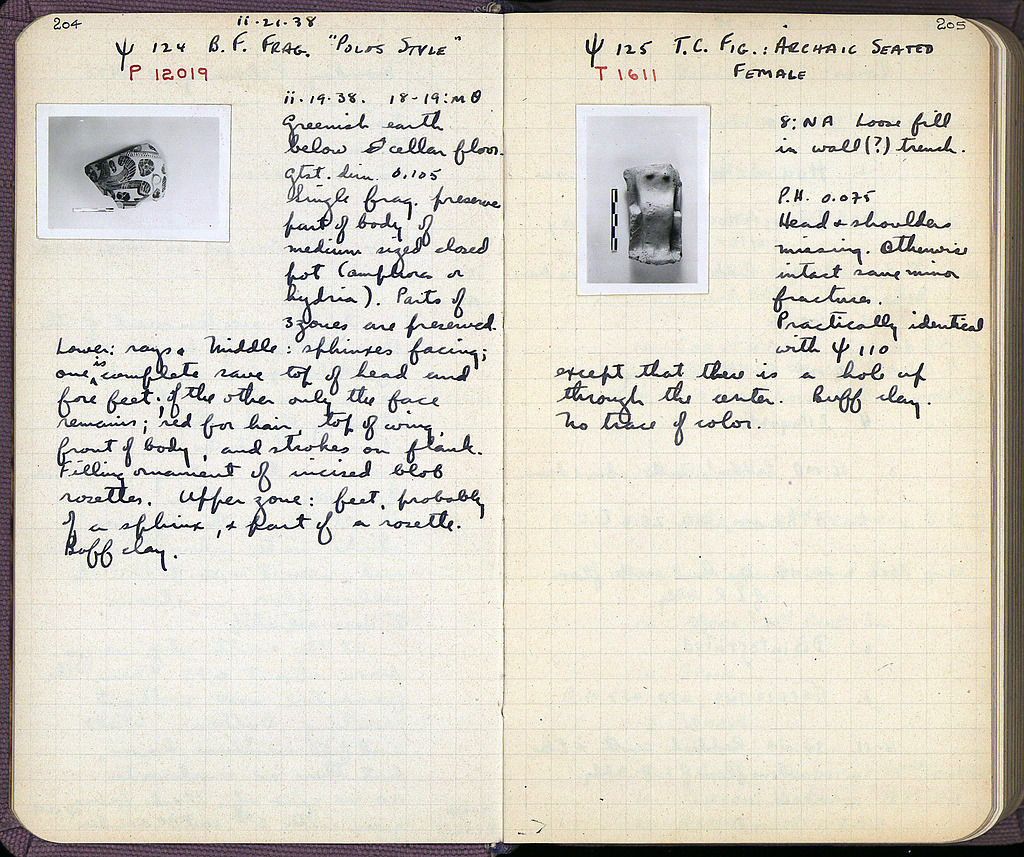 204
ii-21-38
Ψ 124 B. F. FRAG. "POLOS STYLE"
P 12019
ii-19-38. 18-19:ΜΘ
Greenish earth
below cellar floor.
gtst. dim. 0.105
Single frag. preserve
part of body of
medium sized closed
pot (amphora or
hydria). Parts of
3 zones are preserved.
Lower: rays. Middle: sphinxes facing;
one is complete save top of head and
fore feet; of the other only the face
remains; red for hair, top of wing,
front of body, and strokes on flank.
Filling ornament of incised blob
rosettes. Upper zone: feet, probably
of a sphinx, & part of a rosette.
Buff clay.
205
Ψ 125 T.C. FIG.: ARCHAIC SEATED
FEMALE
T 1611
8:NA Loose fill
in wall(?) trench.
P.H. 0.075
Head & shoulders
missing. Otherwise
intact save minor
fractures.
Practically identical
with Ψ 110
except that there is a hole up
through the center. Buff clay.
No trace of color.